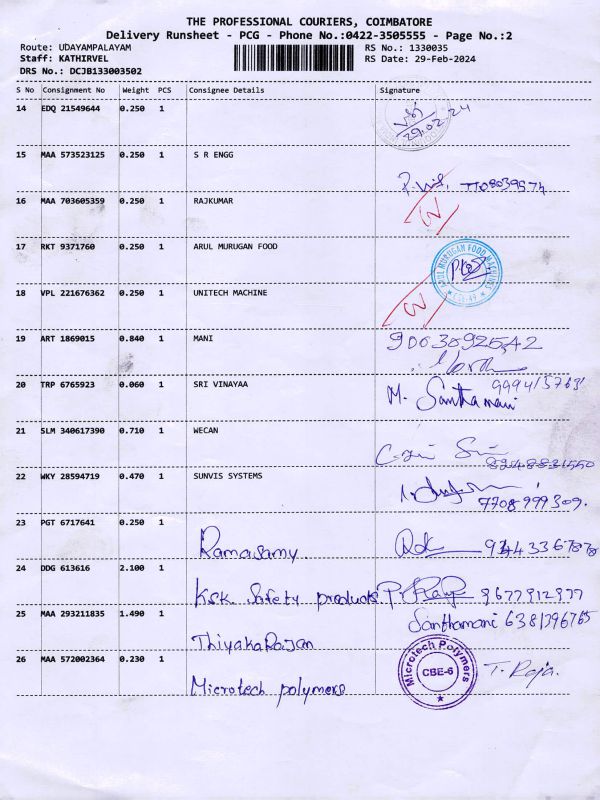 THE PROFESSIONAL COURIERS, COIMBATORE
Delivery Runsheet - PCG - Phone No.:0422-3505555 - Page No.:2
Route: UDAYAMPALAYAM RS No.: 1330035
Staff: KATHIRVEL RS Date: 29-Feb-2024
DRS No.: DCJB133003502
S No Consignment No Weight PCS Consignee Details Signature
14 EDQ 21549644 0.250 1
29.02.24
15 MAA 573523125 0.250 1 S R ENGG
7708039574
16 MAA 703605359 0.250 1 RAJKUMAR
17 RKT 9371760 0.250 1 ARUL MURUGAN FOOD
ARUL MURUGAN FOOD MACHINES
18 VPL 221676362 0.250 1 UNITECH MACHINE
19 ART 1869015 0.840 1 MANI
9003092542
20 TRP 6765923 0.060 1 SRI VINAYAA
M. Santhamani
21 SLM 340617390 0.710 1 WECAN
8248831550
22 WKY 28594719 0.470 1 SUNVIS SYSTEMS
7708999309.
23 PGT 6717641 0.250 1
Ramasamy
24 DDG 613616 2.100 1
KSK Safety products 9677912977
25 MAA 293211835 1.490 1
Santhamani 6381396765
ThiyakaRajan
26 MAA 572002364 0.230 1
Microtech polymers
Microtech Polymers
CBE-6
T. Raja.